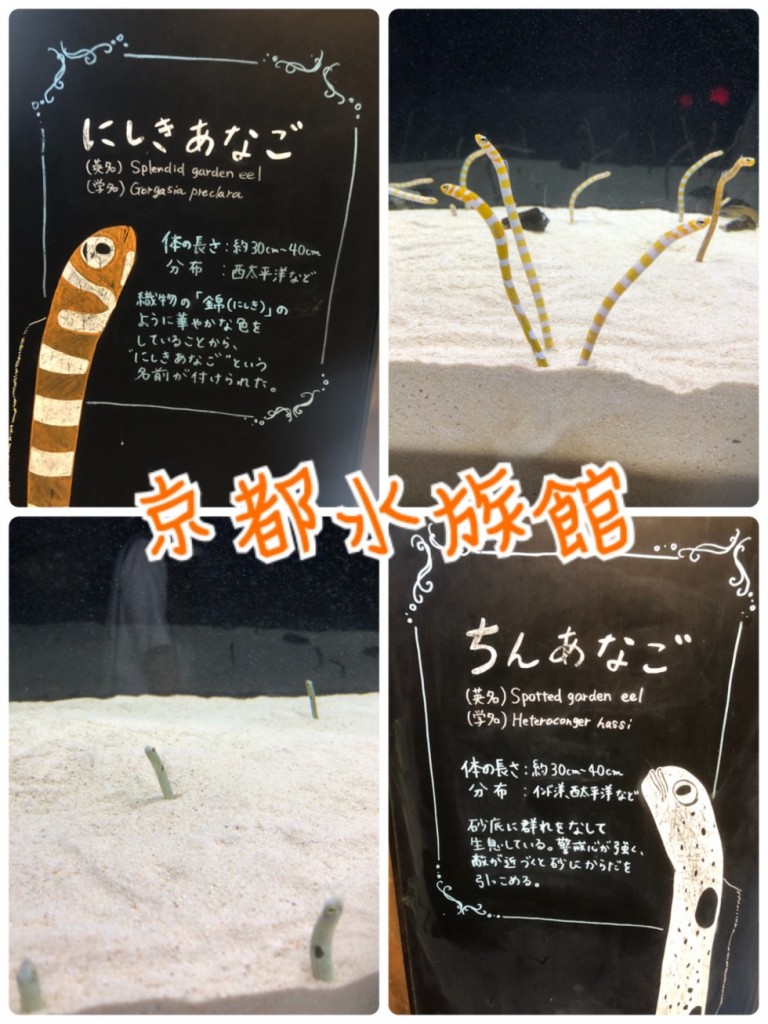 にしきあなご
(英名) Splendid garden eel
(学名) Gorgasia preclara
体の長さ：約30cm~40cm
分布：西太平洋など
織物の「錦(にしき)」の
ように華やかな色を
していることから、
"にしきあなご"という
名前が付けられた。
京都水族館
ちんあなご
(英名) Spotted garden eel
(学名) Heteroconger hassi
体の長さ：約30cm~40cm
分布：インド洋、西太平洋など
砂底に群れをなして
生息している。警戒心が強く、
敵が近づくと砂にからだを
引っこめる。